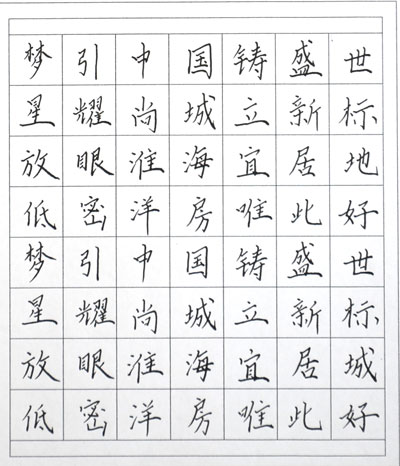 梦引中国铸盛世
星耀尚城立新标
放眼淮海宜居地
低密洋房唯此好
梦引中国铸盛世
星耀尚城立新标
放眼淮海宜居城
低密洋房唯此好